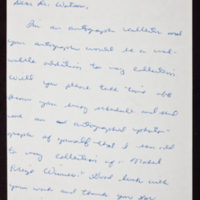 Dear Dr. Watson,
I'm an autograph collector and
your autograph would be a val-
uable addition to my collection.
Will you please take time off
from your busy schedule and send
me an autographed photo-
graph of yourself that I can add
to my collection of "Nobel
Prize Winners." Good luck with
your work and thank you for